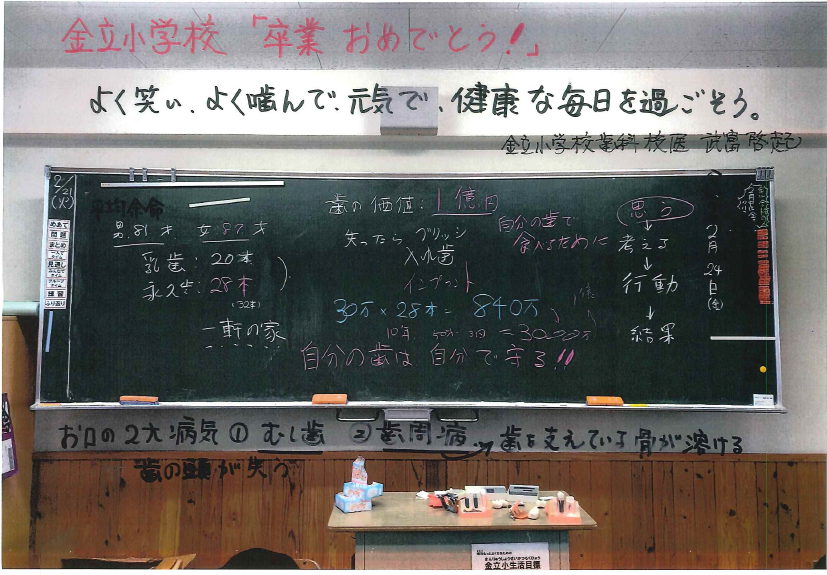 金立小学校「卒業 おめでとう!」
よく笑い、よく噛んで、元気で、健康な毎日を過ごそう。
金立小学校歯科校医 武富啓起
2/21
(火)
めあて
問題
まとめ
見通し
練習
ふり返り
平均余命
男:81才 女:87才
乳歯:20本
永久歯:28本
(32本)
一軒の家
歯の価値:1億円
失ったら ブリッジ
入れ歯
インプラント
自分の歯で
食べるために
30万×28本=840万
10年 3回 =3000万
1億
自分の歯は自分で守る!!
思う
↓
考える
↓
行動
↓
結果
2月24日(金)
お口の2大病気 ① むし歯 ②歯周病→歯を支えている骨が溶ける
歯の頭が失う
金立小生活目標